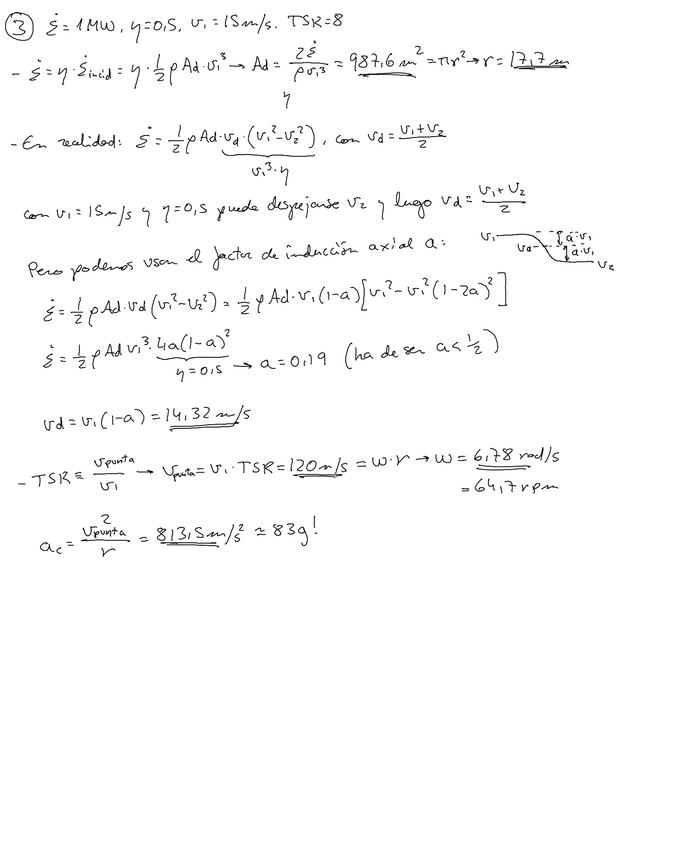 ③ Ė = 1MW, η=0,5, v₁=15m/s. TSR=8
- Ė = η·Ė_incid = η·½ρAd·v₁³ → Ad = 2Ė/ρv₁³η = 987,6 m² = πr² → r = 17,7 m
- En realidad: Ė = ½ρAd·vd·(v₁²-v₂²), con vd = (v₁+v₂)/2
v₁³·η
con v₁=15m/s y η=0,5 puede despejarse v₂ y luego vd = (v₁+v₂)/2
Pero podemos usar el factor de inducción axial a:
v₁ vd a·v₁ a·v₁ v₂
Ė = ½ρAd·vd(v₁²-v₂²) = ½ρAd·v₁(1-a)[v₁²-v₁²(1-2a)²]
Ė = ½ρAd v₁³·4a(1-a)²
η=0,5 → a=0,19 (ha de ser a<½)
vd = v₁(1-a) = 14,32 m/s
- TSR ≡ vpunta/v₁ → vpunta = v₁·TSR = 120m/s = w·r → w = 6,78 rad/s
= 64,7rpm
ac = vpunta²/r = 813,5m/s² ≃ 83g!